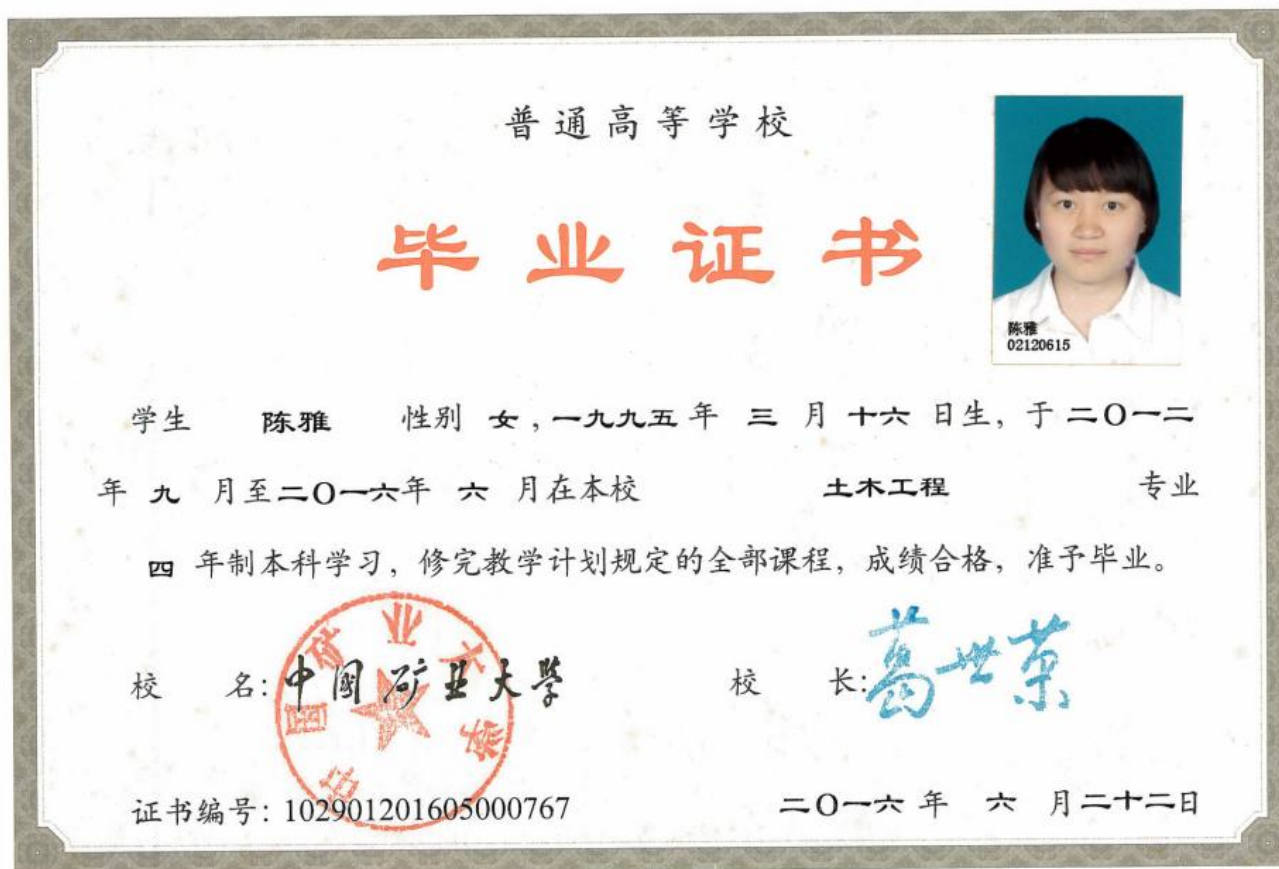 普通高等学校
毕业证书
陈雅
02120615
学生 陈雅 性别 女，一九九五年 三 月 十六 日生，于二〇一二
年 九 月至二〇一六年 六 月在本校 土木工程 专业
四 年制本科学习，修完教学计划规定的全部课程，成绩合格，准予毕业。
校 名：中国矿业大学 校 长：葛世荣
证书编号：102901201605000767 二〇一六年 六 月二十二日